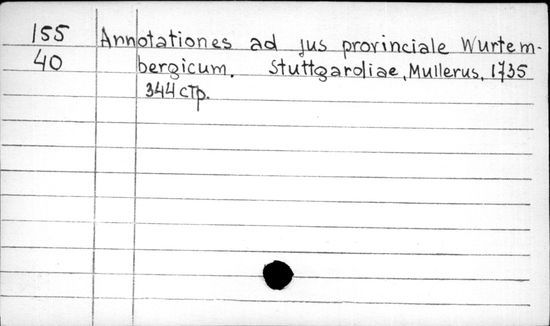 155 Annotationes ad jus provinciale Wurtem-
40 bergicum. Stuttgardiae, Mullerus, 1735
344 стр.